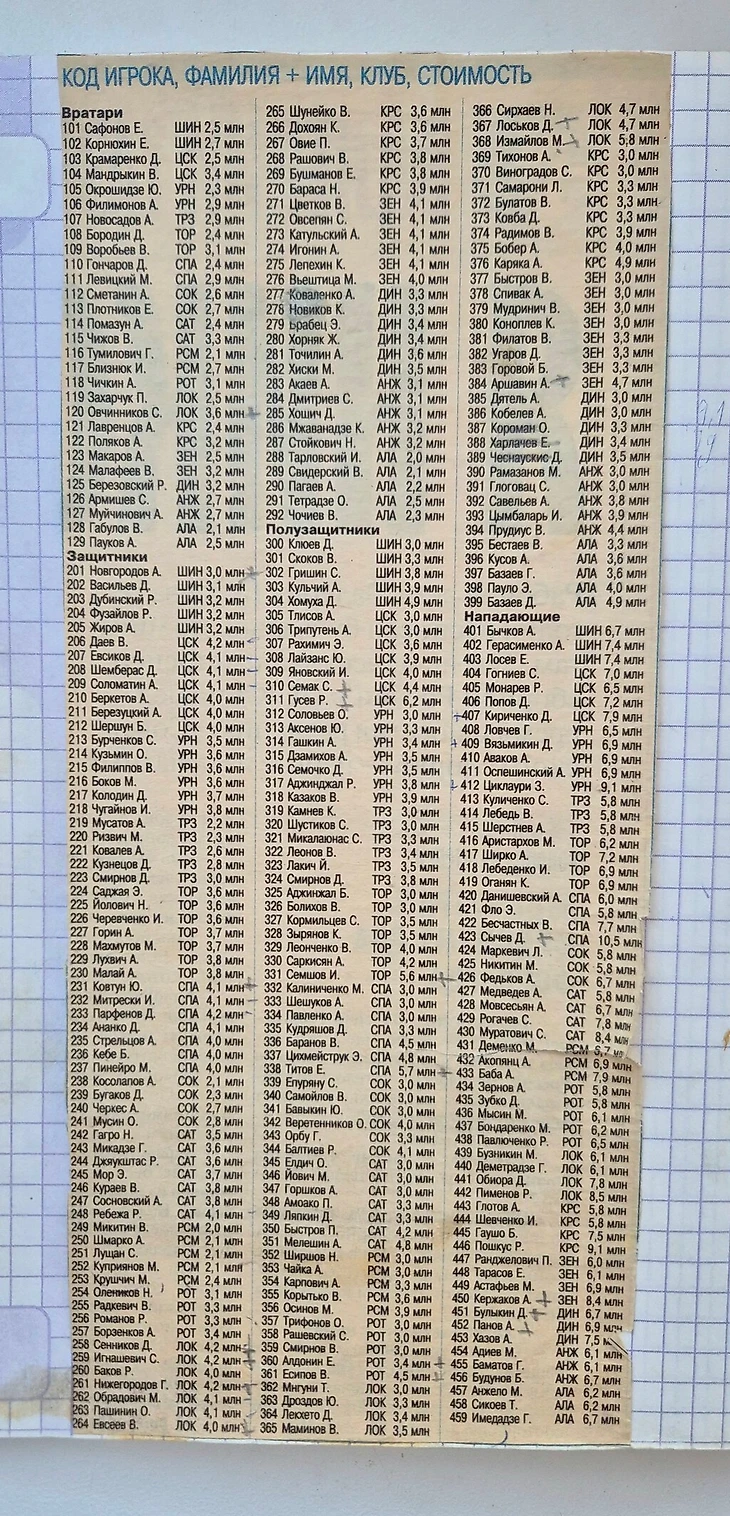 КОД ИГРОКА, ФАМИЛИЯ + ИМЯ, КЛУБ, СТОИМОСТЬ
Вратари
101 Сафонов Е. ШИН 2,5 млн
102 Корнюхин Е. ШИН 2,7 млн
103 Крамаренко Д. ЦСК 2,5 млн
104 Мандрыкин В. ЦСК 3,4 млн
105 Окрошидзе Ю. УРН 2,3 млн
106 Филимонов А. УРН 2,9 млн
107 Новосадов А. ТРЗ 2,9 млн
108 Бородин Д. ТОР 2,4 млн
109 Воробьев В. ТОР 3,1 млн
110 Гончаров Д. СПА 2,4 млн
111 Левицкий М. СПА 2,9 млн
112 Сметанин А. СОК 2,6 млн
113 Плотников Е. СОК 2,7 млн
114 Помазун А. САТ 2,4 млн
115 Чижов В. САТ 3,3 млн
116 Тумилович Г. РСМ 2,1 млн
117 Близнюк И. РСМ 2,7 млн
118 Чичкин А. РОТ 3,1 млн
119 Захарчук П. ЛОК 2,5 млн
120 Овчинников С. ЛОК 3,6 млн
121 Лавренцов А. КРС 2,4 млн
122 Поляков А. КРС 3,2 млн
123 Макаров А. ЗЕН 2,5 млн
124 Малафеев В. ЗЕН 3,2 млн
125 Березовский Р. ДИН 3,2 млн
126 Армишев С. АНЖ 2,7 млн
127 Муйчинович А. АНЖ 2,7 млн
128 Габулов В. АЛА 2,1 млн
129 Пауков А. АЛА 2,5 млн
Защитники
201 Новгородов А. ШИН 3,0 млн
202 Васильев Д. ШИН 3,1 млн
203 Дубинский Р. ШИН 3,2 млн
204 Фузайлов Р. ШИН 3,2 млн
205 Жиров А. ШИН 3,2 млн
206 Даев В. ЦСК 4,2 млн
207 Евсиков Д. ЦСК 4,1 млн
208 Шемберас Д. ЦСК 4,1 млн
209 Соломатин А. ЦСК 4,1 млн
210 Беркетов А. ЦСК 4,0 млн
211 Березуцкий А. ЦСК 4,0 млн
212 Шершун Б. ЦСК 4,0 млн
213 Бурченков С. УРН 3,5 млн
214 Кузьмин О. УРН 3,6 млн
215 Филиппов В. УРН 3,6 млн
216 Боков М. УРН 3,6 млн
217 Колодин Д. УРН 3,7 млн
218 Чугайнов И. УРН 3,8 млн
219 Мусатов А. ТРЗ 2,2 млн
220 Ризвич М. ТРЗ 2,3 млн
221 Ковалев А. ТРЗ 2,6 млн
222 Кузнецов Д. ТРЗ 2,8 млн
223 Смирнов Д. ТРЗ 3,0 млн
224 Саджая Э. ТОР 3,6 млн
225 Йолович Н. ТОР 3,6 млн
226 Черевченко И. ТОР 3,6 млн
227 Горин А. ТОР 3,7 млн
228 Махмутов М. ТОР 3,7 млн
229 Лухвич А. ТОР 3,8 млн
230 Малай А. ТОР 3,8 млн
231 Ковтун Ю. СПА 4,1 млн
232 Митрески И. СПА 4,1 млн
233 Парфенов Д. СПА 4,2 млн
234 Ананко Д. СПА 4,1 млн
235 Стрельцов А. СПА 4,0 млн
236 Кебе Б. СПА 4,0 млн
237 Пинейро М. СПА 4,0 млн
238 Косолапов А. СОК 2,1 млн
239 Бугаков Д. СОК 2,3 млн
240 Черкес А. СОК 2,7 млн
241 Мусин О. СОК 2,8 млн
242 Гагро Н. САТ 3,5 млн
243 Микадзе Г. САТ 3,6 млн
244 Джяукштас Р. САТ 3,6 млн
245 Мор Э. САТ 3,7 млн
246 Кураев В. САТ 3,8 млн
247 Сосновский А. САТ 3,8 млн
248 Ребежа Р. САТ 4,1 млн
249 Микитин В. РСМ 2,0 млн
250 Шмарко А. РСМ 2,1 млн
251 Лущан С. РСМ 2,1 млн
252 Куприянов М. РСМ 2,1 млн
253 Крушчич М. РСМ 2,4 млн
254 Олеников Н. РОТ 3,1 млн
255 Радкевич В. РОТ 3,3 млн
256 Романов Р. РОТ 3,3 млн
257 Борзенков А. РОТ 3,4 млн
258 Сенников Д. ЛОК 4,2 млн
259 Игнашевич С. ЛОК 4,2 млн
260 Баков Р. ЛОК 4,0 млн
261 Нижегородов Г. ЛОК 4,2 млн
262 Обрадович М. ЛОК 4,1 млн
263 Пашинин О. ЛОК 4,1 млн
264 Евсеев В. ЛОК 4,0 млн
265 Шунейко В. КРС 3,6 млн
266 Дохоян К. КРС 3,6 млн
267 Овие П. КРС 3,7 млн
268 Рашович В. КРС 3,8 млн
269 Бушманов Е. КРС 3,8 млн
270 Бараса Н. КРС 3,9 млн
271 Цветков В. ЗЕН 4,1 млн
272 Овсепян С. ЗЕН 4,1 млн
273 Катульский А. ЗЕН 4,1 млн
274 Игонин А. ЗЕН 4,1 млн
275 Лепехин К. ЗЕН 4,1 млн
276 Вьештица М. ЗЕН 4,0 млн
277 Коваленко А. ДИН 3,3 млн
278 Новиков К. ДИН 3,3 млн
279 Брабец Э. ДИН 3,4 млн
280 Хорняк Ж. ДИН 3,4 млн
281 Точилин А. ДИН 3,6 млн
282 Хиски М. ДИН 3,5 млн
283 Акаев А. АНЖ 3,1 млн
284 Дмитриев С. АНЖ 3,1 млн
285 Хошич Д. АНЖ 3,1 млн
286 Мжаванадзе К. АНЖ 3,2 млн
287 Стойкович Н. АНЖ 3,2 млн
288 Тарловский И. АЛА 2,0 млн
289 Свидерский В. АЛА 2,1 млн
290 Пагаев А. АЛА 2,2 млн
291 Тетрадзе О. АЛА 2,5 млн
292 Чочиев В. АЛА 2,3 млн
Полузащитники
300 Клюев Д. ШИН 3,0 млн
301 Скоков В. ШИН 3,3 млн
302 Гришин С. ШИН 3,8 млн
303 Кульчий А. ШИН 3,9 млн
304 Хомуха Д. ШИН 4,9 млн
305 Тлисов А. ЦСК 3,0 млн
306 Трипутень А. ЦСК 3,0 млн
307 Рахимич Э. ЦСК 3,6 млн
308 Лайзанс Ю. ЦСК 3,9 млн
309 Яновский И. ЦСК 4,0 млн
310 Семак С. ЦСК 4,4 млн
311 Гусев Р. ЦСК 6,2 млн
312 Соловьев О. УРН 3,0 млн
313 Аксенов Ю. УРН 3,3 млн
314 Гашкин А. УРН 3,4 млн
315 Дзамихов А. УРН 3,5 млн
316 Семочко Д. УРН 3,5 млн
317 Аджинджал Р. УРН 3,8 млн
318 Казаков В. УРН 3,9 млн
319 Камнев К. ТРЗ 3,0 млн
320 Шустиков С. ТРЗ 3,0 млн
321 Микалаюнас С. ТРЗ 3,3 млн
322 Леонов В. ТРЗ 3,4 млн
323 Лакич Й. ТРЗ 3,5 млн
324 Смирнов Д. ТРЗ 3,8 млн
325 Аджинжал Б. ТОР 3,0 млн
326 Болихов В. ТОР 3,0 млн
327 Кормильцев С. ТОР 3,5 млн
328 Зырянов К. ТОР 3,5 млн
329 Леонченко В. ТОР 4,0 млн
330 Саркисян А. ТОР 4,2 млн
331 Семшов И. ТОР 5,6 млн
332 Калиниченко М. СПА 3,0 млн
333 Шешуков А. СПА 3,0 млн
334 Павленко А. СПА 3,0 млн
335 Кудряшов Д. СПА 3,3 млн
336 Баранов В. СПА 4,5 млн
337 Цихмейструк Э. СПА 4,8 млн
338 Титов Е. СПА 5,7 млн
339 Епуряну С. СОК 3,0 млн
340 Самойлов В. СОК 3,0 млн
341 Бавыкин Ю. СОК 3,0 млн
342 Веретенников О. СОК 4,0 млн
343 Орбу Г. СОК 3,3 млн
344 Балтиев Р. СОК 4,1 млн
345 Елдич О. САТ 3,0 млн
346 Йович М. САТ 3,0 млн
347 Горшков А. САТ 3,0 млн
348 Амоако П. САТ 3,3 млн
349 Ляпкин Д. САТ 3,3 млн
350 Быстров П. САТ 4,2 млн
351 Мелешин А. САТ 4,8 млн
352 Ширшов Н. РСМ 3,0 млн
353 Чайка А. РСМ 3,0 млн
354 Карпович А. РСМ 3,3 млн
355 Корытько В. РСМ 3,6 млн
356 Осинов М. РСМ 3,9 млн
357 Трифонов О. РОТ 3,0 млн
358 Рашевский С. РОТ 3,0 млн
359 Смирнов В. РОТ 3,0 млн
360 Алдонин Е. РОТ 3,4 млн
361 Есипов В. РОТ 4,5 млн
362 Мнгуни Т. ЛОК 3,0 млн
363 Дроздов Ю. ЛОК 3,3 млн
364 Лекхето Д. ЛОК 3,4 млн
365 Маминов В. ЛОК 3,5 млн
366 Сирхаев Н. ЛОК 4,7 млн
367 Лоськов Д. ЛОК 4,7 млн
368 Измайлов М. ЛОК 5,8 млн
369 Тихонов А. КРС 3,0 млн
370 Виноградов С. КРС 3,0 млн
371 Самарони Л. КРС 3,3 млн
372 Булатов В. КРС 3,3 млн
373 Ковба Д. КРС 3,3 млн
374 Радимов В. КРС 3,9 млн
375 Бобер А. КРС 4,0 млн
376 Каряка А. КРС 4,9 млн
377 Быстров В. ЗЕН 3,0 млн
378 Спивак А. ЗЕН 3,0 млн
379 Мудринич В. ЗЕН 3,0 млн
380 Коноплев К. ЗЕН 3,0 млн
381 Филатов В. ЗЕН 3,3 млн
382 Угаров Д. ЗЕН 3,3 млн
383 Горовой Б. ЗЕН 3,3 млн
384 Аршавин А. ЗЕН 4,7 млн
385 Дятель А. ДИН 3,0 млн
386 Кобелев А. ДИН 3,0 млн
387 Короман О. ДИН 3,3 млн
388 Харлачев Е. ДИН 3,4 млн
389 Чеснаускис Д. ДИН 3,5 млн
390 Рамазанов М. АНЖ 3,0 млн
391 Глоговац С. АНЖ 3,0 млн
392 Савельев А. АНЖ 3,8 млн
393 Цымбаларь И. АНЖ 3,9 млн
394 Прудиус В. АНЖ 4,4 млн
395 Бестаев В. АЛА 3,3 млн
396 Кусов А. АЛА 3,6 млн
397 Базаев Г. АЛА 3,6 млн
398 Пауло Э. АЛА 4,0 млн
399 Базаев Д. АЛА 4,9 млн
Нападающие
401 Бычков А. ШИН 6,7 млн
402 Герасименко А. ШИН 7,4 млн
403 Лосев Е. ШИН 7,4 млн
404 Гогниев С. ЦСК 7,0 млн
405 Монарев Р. ЦСК 6,5 млн
406 Попов Д. ЦСК 7,2 млн
407 Кириченко Д. ЦСК 7,9 млн
408 Ловчев Г. УРН 6,5 млн
409 Вязьмикин Д. УРН 6,9 млн
410 Аваков А. УРН 6,9 млн
411 Оспешинский А. УРН 6,9 млн
412 Циклаури З. УРН 9,1 млн
413 Куличенко С. ТРЗ 5,8 млн
414 Лебедь В. ТРЗ 5,8 млн
415 Шерстнев А. ТРЗ 5,8 млн
416 Аристархов М. ТОР 6,2 млн
417 Ширко А. ТОР 7,2 млн
418 Лебеденко И. ТОР 6,9 млн
419 Оганян К. ТОР 6,9 млн
420 Данишевский А. СПА 6,0 млн
421 Фло Э. СПА 5,8 млн
422 Бесчастных В. СПА 7,7 млн
423 Сычев Д. СПА 10,5 млн
424 Маркевич Л. СОК 5,8 млн
425 Никитин М. СОК 5,8 млн
426 Федьков А. СОК 6,7 млн
427 Медведев А. САТ 5,8 млн
428 Мовсесьян А. САТ 6,7 млн
429 Рогачев С. САТ 7,8 млн
430 Муратович С. САТ 8,4 млн
431 Деменко М. РСМ 6,7 млн
432 Акопянц А. РСМ 6,9 млн
433 Баба А. РСМ 7,9 млн
434 Зернов А. РОТ 5,8 млн
435 Зубко Д. РОТ 5,8 млн
436 Мысин М. РОТ 6,1 млн
437 Бондаренко М. РОТ 6,2 млн
438 Павлюченко Р. РОТ 6,5 млн
439 Бузникин М. ЛОК 6,1 млн
440 Деметрадзе Г. ЛОК 6,1 млн
441 Обиора Д. ЛОК 7,8 млн
442 Пименов Р. ЛОК 8,5 млн
443 Глотов А. КРС 5,8 млн
444 Шевченко И. КРС 5,8 млн
445 Гаушо Б. КРС 7,5 млн
446 Пошкус Р. КРС 9,1 млн
447 Ранджелович П. ЗЕН 6,0 млн
448 Тарасов Е. ЗЕН 6,1 млн
449 Астафьев М. ЗЕН 6,9 млн
450 Кержаков А. ЗЕН 8,4 млн
451 Булыкин Д. ДИН 6,7 млн
452 Панов А. ДИН 6,9 млн
453 Хазов А. ДИН 7,5
454 Адиев М. АНЖ 6,1 млн
455 Баматов Г. АНЖ 6,1 млн
456 Будунов Б. АНЖ 6,7 млн
457 Анжело М. АЛА 6,2 млн
458 Сикоев Т. АЛА 6,2 млн
459 Имедадзе Г. АЛА 6,7 млн